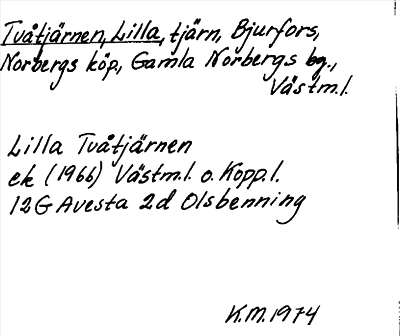 Tvåtjärnen, Lilla, tjärn, Bjurfors,
Norbergs köp., Gamla Norbergs bg.,
Västm.l.
Lilla Tvåtjärnen
ek (1966) Västm.l. o. Kopp.l.
12G Avesta 2d Olsbenning
K.M.1974